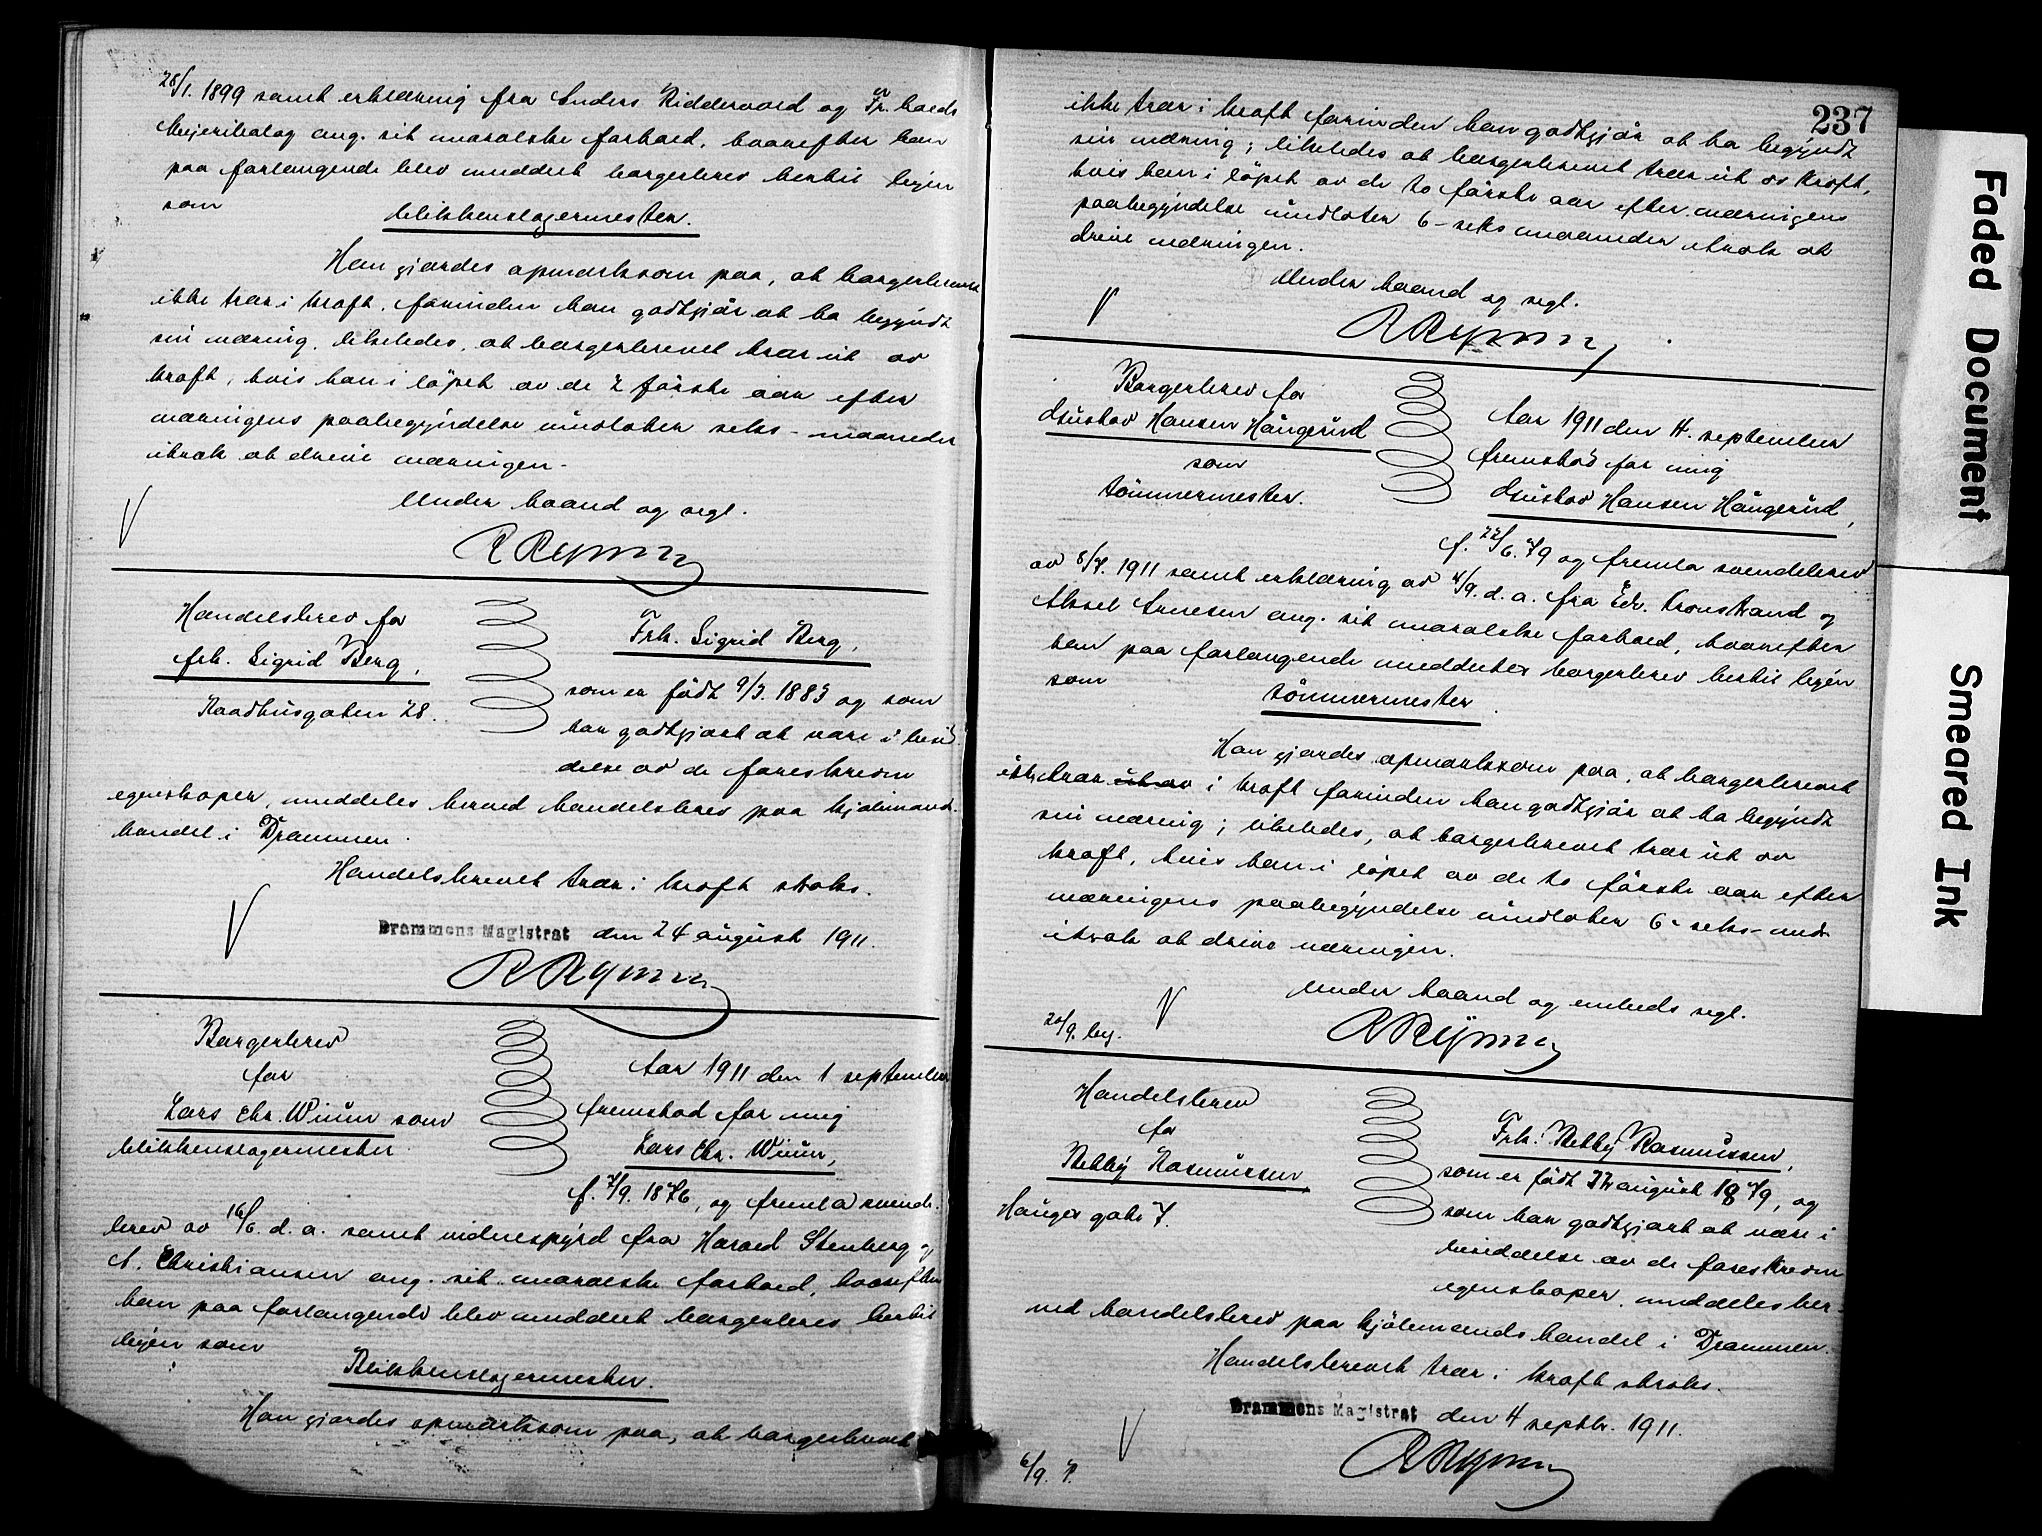 28/1. 1899 samt erklæring fra Anders Ridderold og Fr.
ang. sit moralske forhold, hvorefter han
paa forlangende blev meddelt borgerbrev hertil byen
som
blikkenslagermester.
Han gjordes opmerksom paa, at borgerbrevet
ikke trær i kraft, forinden han godtgjør at ha begyndt
sin næring, likeledes, at borgerbrevet trær ut av
kraft, hvis han i løpet av de 2 første aar efter
næringens paabegyndelse undlater seks - maaneder
itræk at drive næringen.
Under haand og segl.
V
Handelsbrev for
frk. Sigrid Berg,
Raadhusgaten 28.
Frk. Sigrid Berg,
som er født 9/3. 1883 og som
har godtgjort at være i besid-
delse av de foreskrevne
egenskaper, meddeles herved handelsbrev paa kjøbmands-
handel i Drammen.
Handelsbrevet trær i kraft straks.
V
Drammens Magistrat den 24 august 1911.
Borgerbrev
for
Lars Chr. Wiium som
blikkenslagermester
Aar 1911 den 1 september
fremstod for mig
Lars Chr. Wiium,
f. 7/9. 1876, og fremla svende-
brev av 16/6. d. a. samt vidnespyrd fra Harald Stenberg og
A. Christiansen ang. sit moralske forhold, hvorefter
han paa forlangende blev meddelt borgerbrev hertil
byen som
Blikkenslagermester.
Han gjordes opmerksom paa, at borgerbrevet
237
ikke trær i kraft forinden han godtgjør at ha begyndt
sin næring; likeledes at borgerbrevet trær ut av kraft,
hvis han i løpet av de to første aar efter næringens
paabegyndelse undlater 6 - seks maaneder itræk at
drive næringen.
Under haand og segl.
V
Borgerbrev for
Gustav Hansen Haugerud
som
tømmermester.
Aar 1911 den 4. september
fremstod for mig
Gustav Hansen Haugerud,
f. 22/6. 79 og fremla svendebrev
av 8/7. 1911 samt erklæring av 4/9. d. a. fra Edv. Tronstrand og
Aksel Arnesen ang. sit moralske forhold, hvorefter
han paa forlangende meddeltes borgerbrev hertil byen
som
tømmermester.
Han gjordes opmerksom paa, at borgerbrevet
ikke trær ut av i kraft forinden han godtgjør at ha begyndt
sin næring; likeledes, at borgerbrevet trær ut av
kraft, hvis han i løpet av de to første aar efter
næringens paabegyndelse undlater 6 - seks - mdr
itræk at drive næringen.
Under haand og embeds segl.
V
20/9. beg.
Handelsbrev
for
Nebby Rasmussen
Hauges gate 7.
Frk. Nebby Rasmussen,
som er født august 1879, og
som har godtgjort at være i
besiddelse av de foreskrevne
egenskaper, meddeles her-
ved handelsbrev paa kjøbmandshandel i Drammen.
Handelsbrevet trær i kraft straks.
Drammens Magistrat den 4 septbr. 1911.
V
6/9.
Faded Document
Smeared Ink